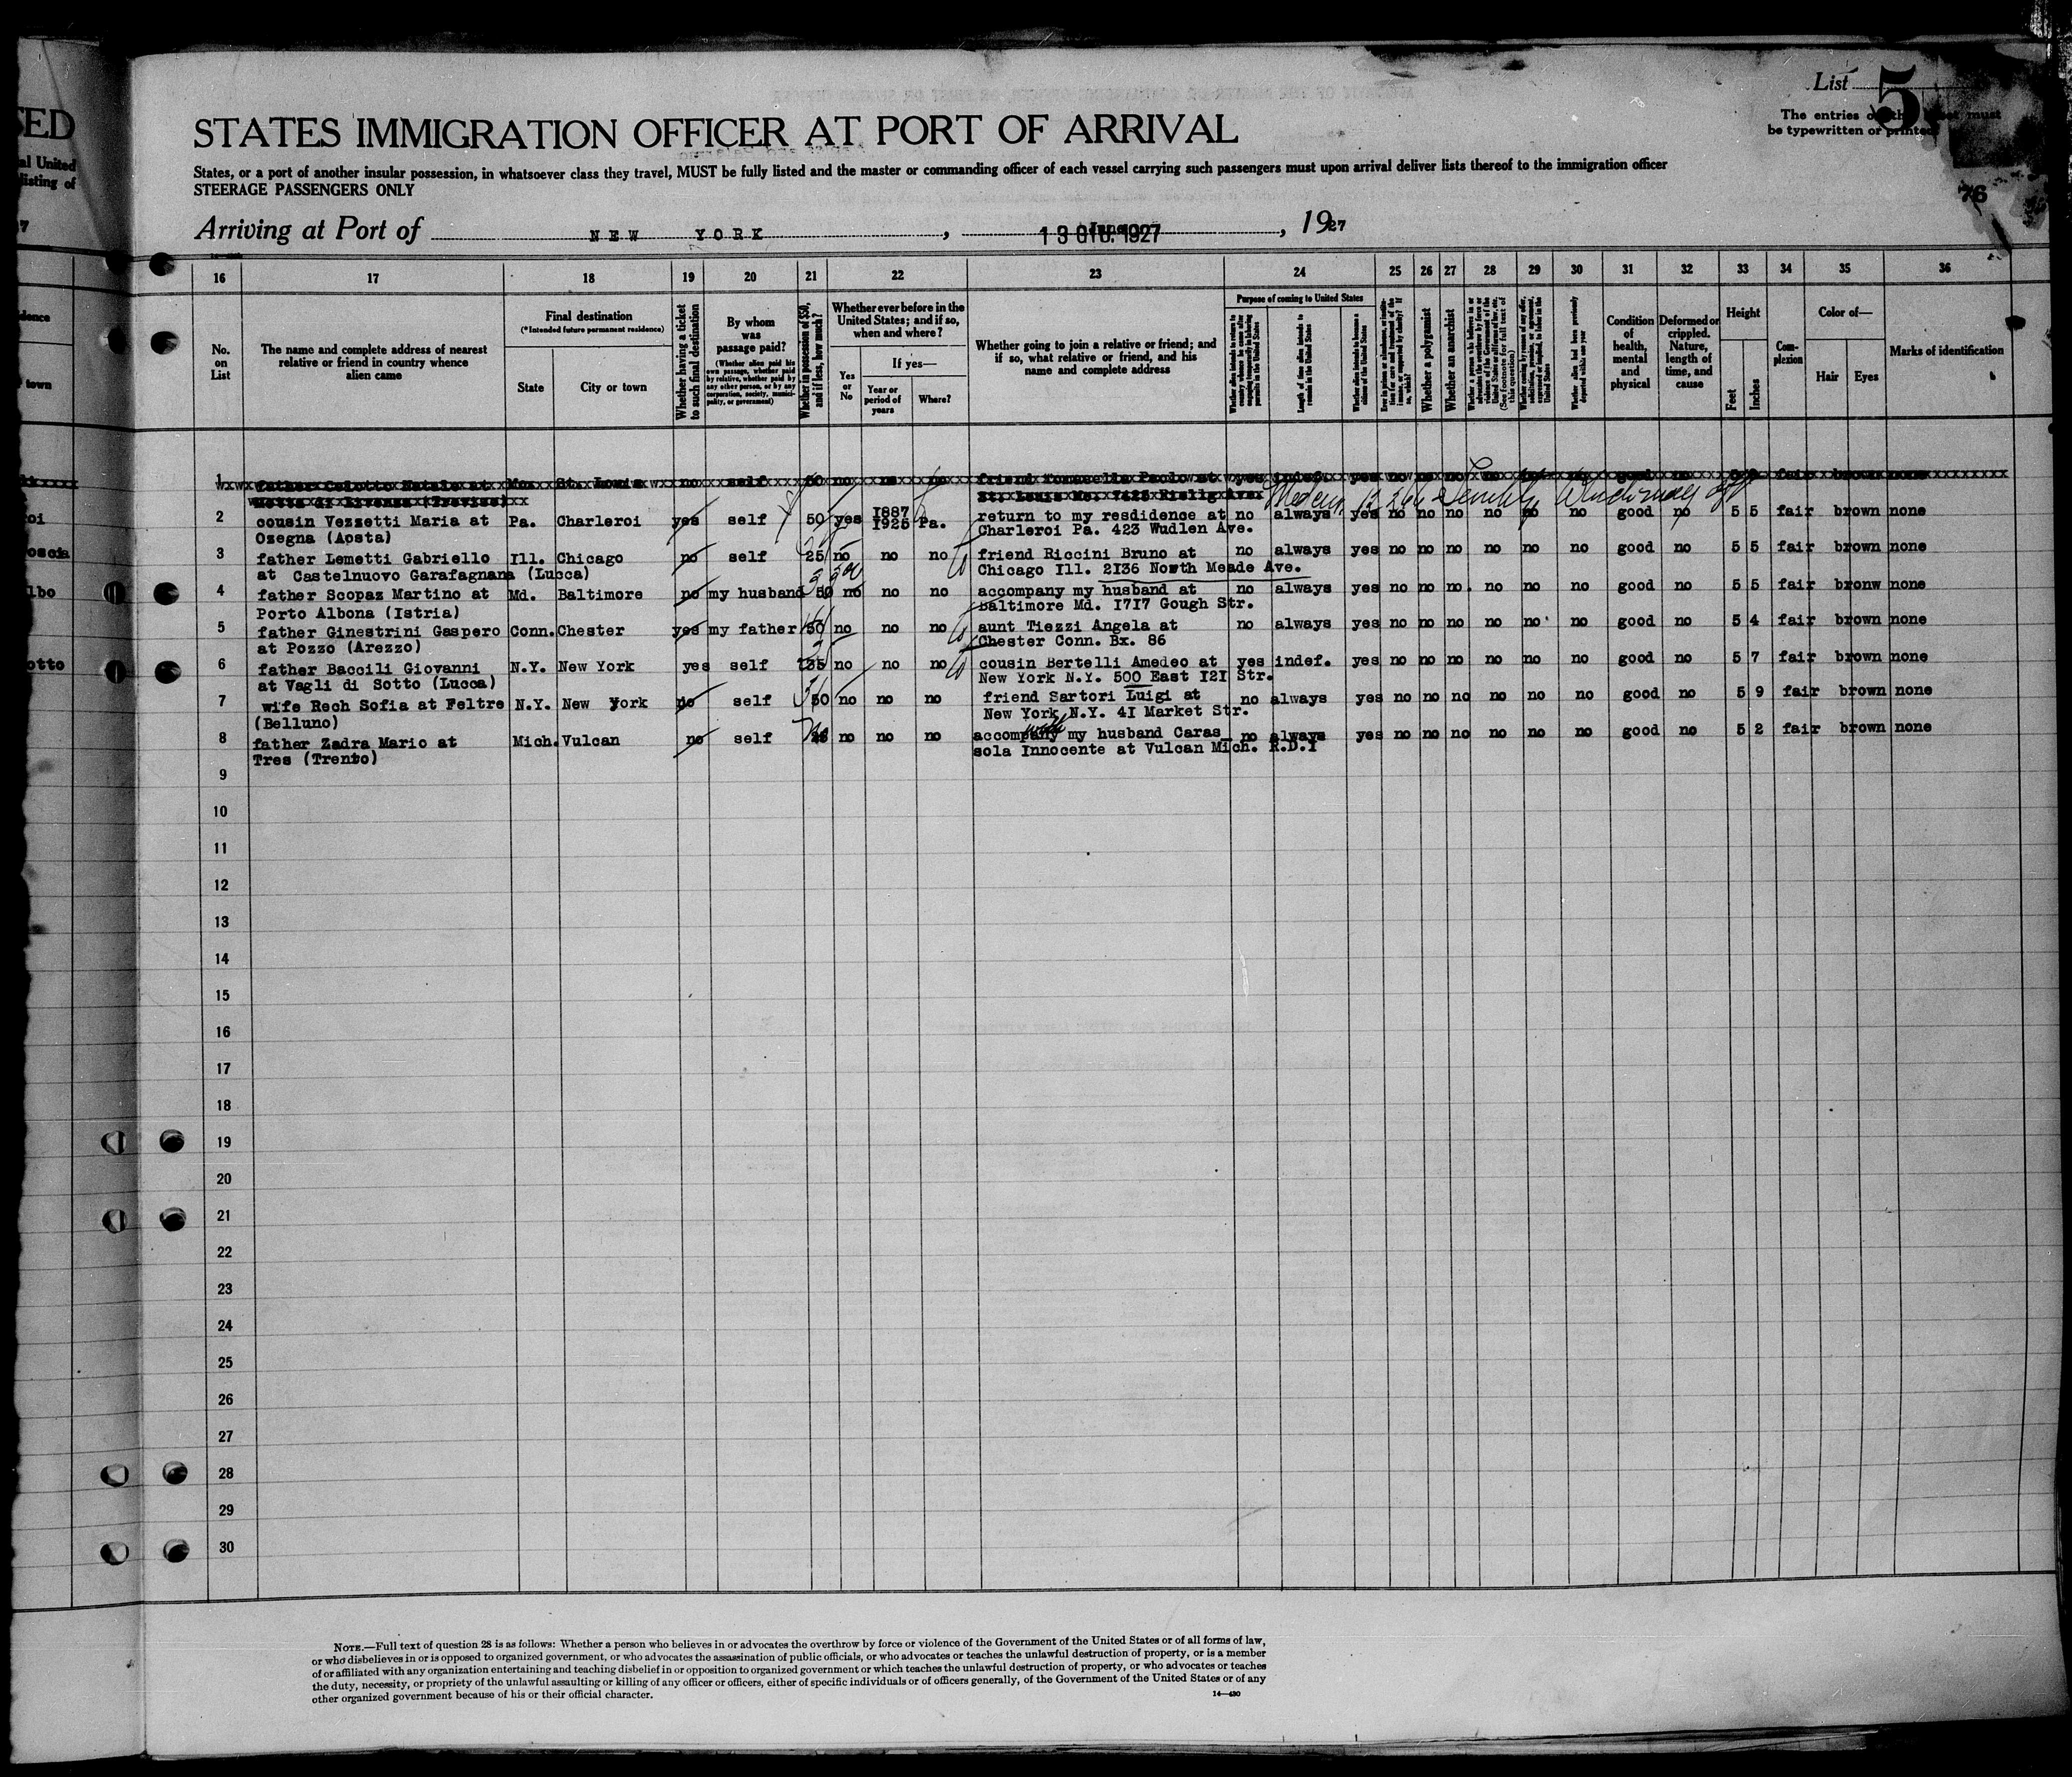 SED
al United
listing of
7
dence
town
oi
oscia
lbo
otto
List 5
The entries on this sheet must
be typewritten or printed
76
STATES IMMIGRATION OFFICER AT PORT OF ARRIVAL
States, or a port of another insular possession, in whatsoever class they travel, MUST be fully listed and the master or commanding officer of each vessel carrying such passengers must upon arrival deliver lists thereof to the immigration officer
STEERAGE PASSENGERS ONLY
Arriving at Port of NEW YORK, 13 GIU. 1927, 1927
16 17 18 19 20 21 22 23 24 25 26 27 28 29 30 31 32 33 34 35 36
No. on List
The name and complete address of nearest relative or friend in country whence alien came
Final destination
(*Intended future permanent residence)
State
City or town
Whether having a ticket to such final destination
By whom was passage paid?
(Whether alien paid his own passage, whether paid by relative, whether paid by any other person, or by any corporation, society, municipality, or government)
Whether in possession of $50, and if less, how much?
Whether ever before in the United States; and if so, when and where?
Yes or No
If yes—
Year or period of years
Where?
Whether going to join a relative or friend; and if so, what relative or friend, and his name and complete address
Purpose of coming to United States
Length of time alien intends to remain in the United States
Whether a polygamist
Whether an anarchist
(See footnote for full text of this question)
Condition of health, mental and physical
Deformed or crippled. Nature, length of time, and cause
Height
Feet
Inches
Com-plexion
Color of—
Hair
Eyes
Marks of identification
1 father Colotto Natale at Mo. St. Louis no self 50 no no no friend Paolo at yes indef. yes no no no no no no good no 5 fair brown none
Motta di Livenza (Treviso) St. Louis Mo.
2 cousin Vezzetti Maria at Pa. Charleroi yes self 50 yes 1887 1925 Pa. return to my resdidence at no always yes no no no no no no good no 5 5 fair brown none
Ozegna (Aosta) Charleroi Pa. 423 Wudlen Ave.
3 father Lemetti Gabriello Ill. Chicago no self 25 no no no friend Riccini Bruno at no always yes no no no no no no good no 5 5 fair brown none
at Castelnuovo Garafagnana (Lucca) Chicago Ill. 2136 North Meade Ave.
4 father Scopaz Martino at Md. Baltimore no my husband 50 no no no accompany my husband at no always yes no no no. no no no good no 5 5 fair bronw none
Porto Albona (Istria) Baltimore Md. 1717 Gough Str.
5 father Ginestrini Gaspero Conn. Chester yes my father 50 no no no aunt Tiezzi Angela at no always yes no no no no no no good no 5 4 fair brown none
at Pozzo (Arezzo) Chester Conn. Bx. 86
6 father Baccili Giovanni N.Y. New York yes self 35 no no no cousin Bertelli Amedeo at yes indef. yes no no no no no no good no 5 7 fair brown none
at Vagli di Sotto (Lucca) New York N.Y. 500 East 121 Str.
7 wife Rech Sofia at Feltre N.Y. New York no self 50 no no no friend Sartori Luigi at no always yes no no no no no no good no 5 9 fair brown none
(Belluno) New York N.Y. 41 Market Str.
8 father Zadra Mario at Mich. Vulcan no self no no no accompany my husband Caras_ no always yes no no no no no no good no 5 2 fair brown none
Tres (Trento) sola Innocente at Vulcan Mich. R.D.1
9
10
11
12
13
14
15
16
17
18
19
20
21
22
23
24
25
26
27
28
29
30
NOTE.—Full text of question 28 is as follows: Whether a person who believes in or advocates the overthrow by force or violence of the Government of the United States or of all forms of law,
or who disbelieves in or is opposed to organized government, or who advocates the assassination of public officials, or who advocates or teaches the unlawful destruction of property, or is a member
of or affiliated with any organization entertaining and teaching disbelief in or opposition to organized government or which teaches the unlawful destruction of property, or who advocates or teaches
the duty, necessity, or propriety of the unlawful assaulting or killing of any officer or officers, either of specific individuals or of officers generally, of the Government of the United States or of any
other organized government because of his or their official character.
14—430